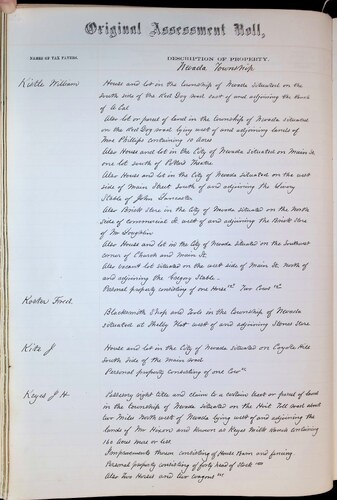 Original Assessment Roll,
NAMES OF TAX PAYERS.
DESCRIPTION OF PROPERTY.
Nevada Township
Kistle William
House and lot in the township of Nevada situated on the
south side of the Red Dog road east of and adjoining the land
of
Also lot or parcel of land in the township of Nevada situated
on the Red Dog road lying west of and adjoining lands of
Mrs Phillips containing 10 acres
Also House and lot in the City of Nevada situated on Main St
one lot south of Theatre
Also House and lot in the City of Nevada situated on the west
side of Main Street South of and adjoining the Livery
Stable of John Lancaster
Also Brick store in the City of Nevada situated on the North
side of commercial St west of and adjoining the Brick store
of
Also House and lot in the City of Nevada situated on the Southwest
corner of Church and Main St.
Also vacant lot situated on the west side of Main St. north of
and adjoining the Stable.
Personal property consisting of one Horse Two Cows
Fred
Blacksmith Shop and Tools in the township of Nevada
situated at Shelly Flat west of and adjoining Stones Store
Kitz J
House and lot in the City of Nevada situated on Coyote Hill
South side of the main road
Personal property consisting of one Cow
Keyes J H.
Possessory right title and claim to a certain tract or parcel of land
in the township of Nevada situated on the road about
two Miles North west of Nevada lying west of and adjoining the
lands of Mr Hixon and known as Keyes Milk Ranch containing
160 Acres more or less
Improvements thereon consisting of House Barn and fencing
Personal property consisting of forty head of stock
Also two Horses and two wagons